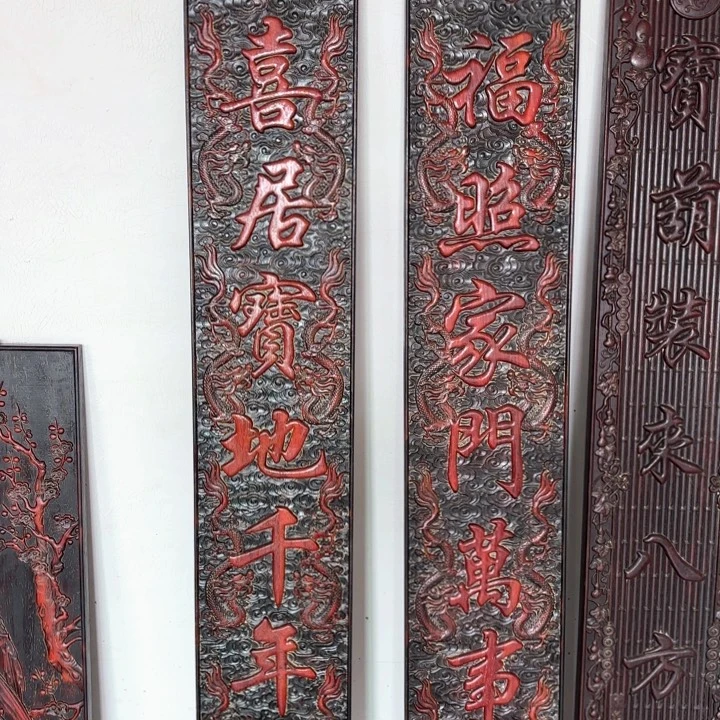 寶葫裝來八方
福照家門萬事
喜居寶地千年